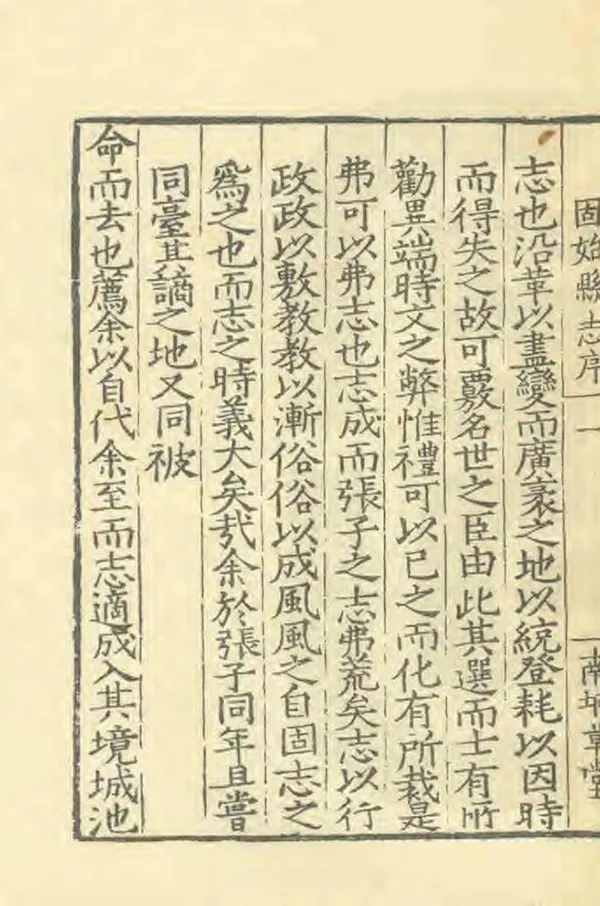 固始縣志序
一
南坰草堂
志也沿革以盡變而廣袤之地以統登耗以因時
而得失之故可覈名世之臣由此其選而士有所
勸異端時文之弊惟禮可以已之而化有所裁是
弗可以弗志也志成而張子之志弗荒矣志以行
政政以敷教教以漸俗俗以成風風之自固志之
爲之也而志之時義大矣㢤余於張子同年且嘗
同臺其謫之地又同被
命而去也薦余以自代余至而志適成入其境城池